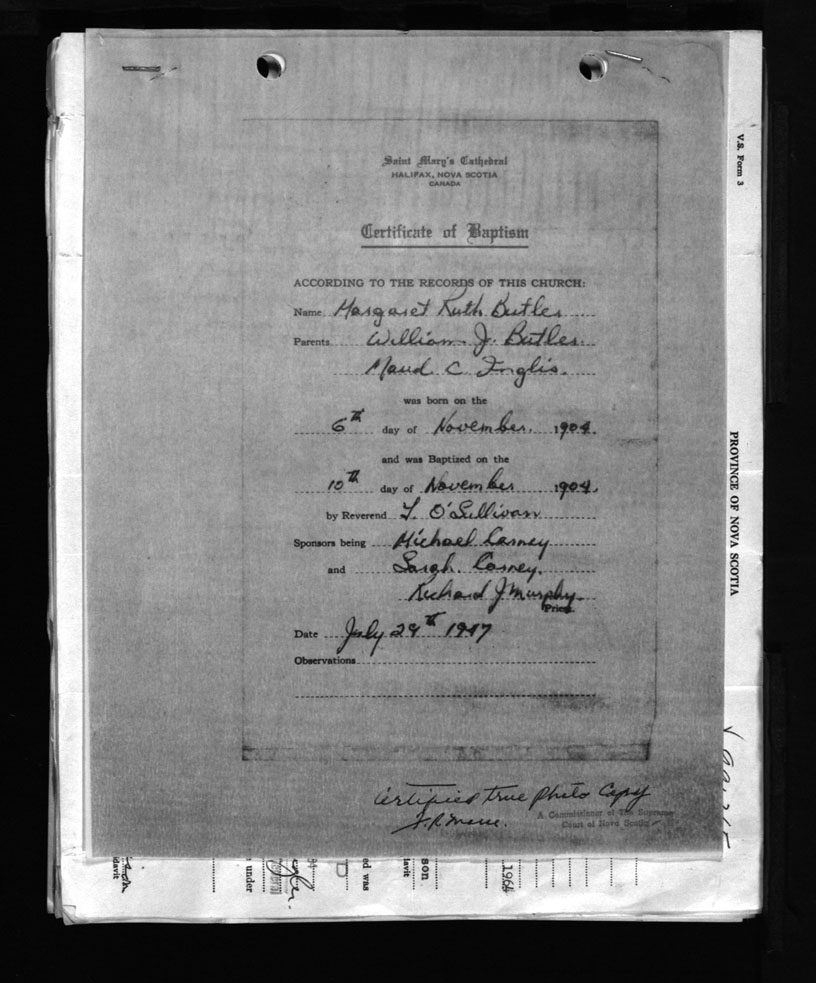 Saint Mary's Cathedral
HALIFAX, NOVA SCOTIA
CANADA
Certificate of Baptism
ACCORDING TO THE RECORDS OF THIS CHURCH:
Name Margaret Ruth Butler
Parents William J. Butler
Maud C Inglis.
was born on the
6th day of November. 1904.
and was Baptized on the
10th day of November 1904.
by Reverend T. O'Sullivan
Sponsors being Michael Carney
and Sarah Carney.
Richard J Murphy.
Priest
Date July 29th 1947
Observations
Certified true photo Copy
A Commissioner of The Supreme
Court of Nova Scotia
V.S. Form 3
PROVINCE OF NOVA SCOTIA
davit
under
ed was
davit
son
1964